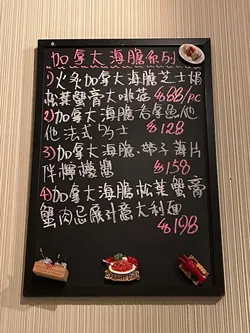 加拿大海膽系列
1)火炙加拿大海膽芝士焗
松葉蟹膏大啡菇 $88/PC
2)加拿大海膽吞拿魚他
他法式多士 $128
3)加拿大海膽.帶子薄片
伴檸檬醬 $158
4)加拿大海膽松葉蟹膏
蟹肉忌廉汁意大利麵
$198